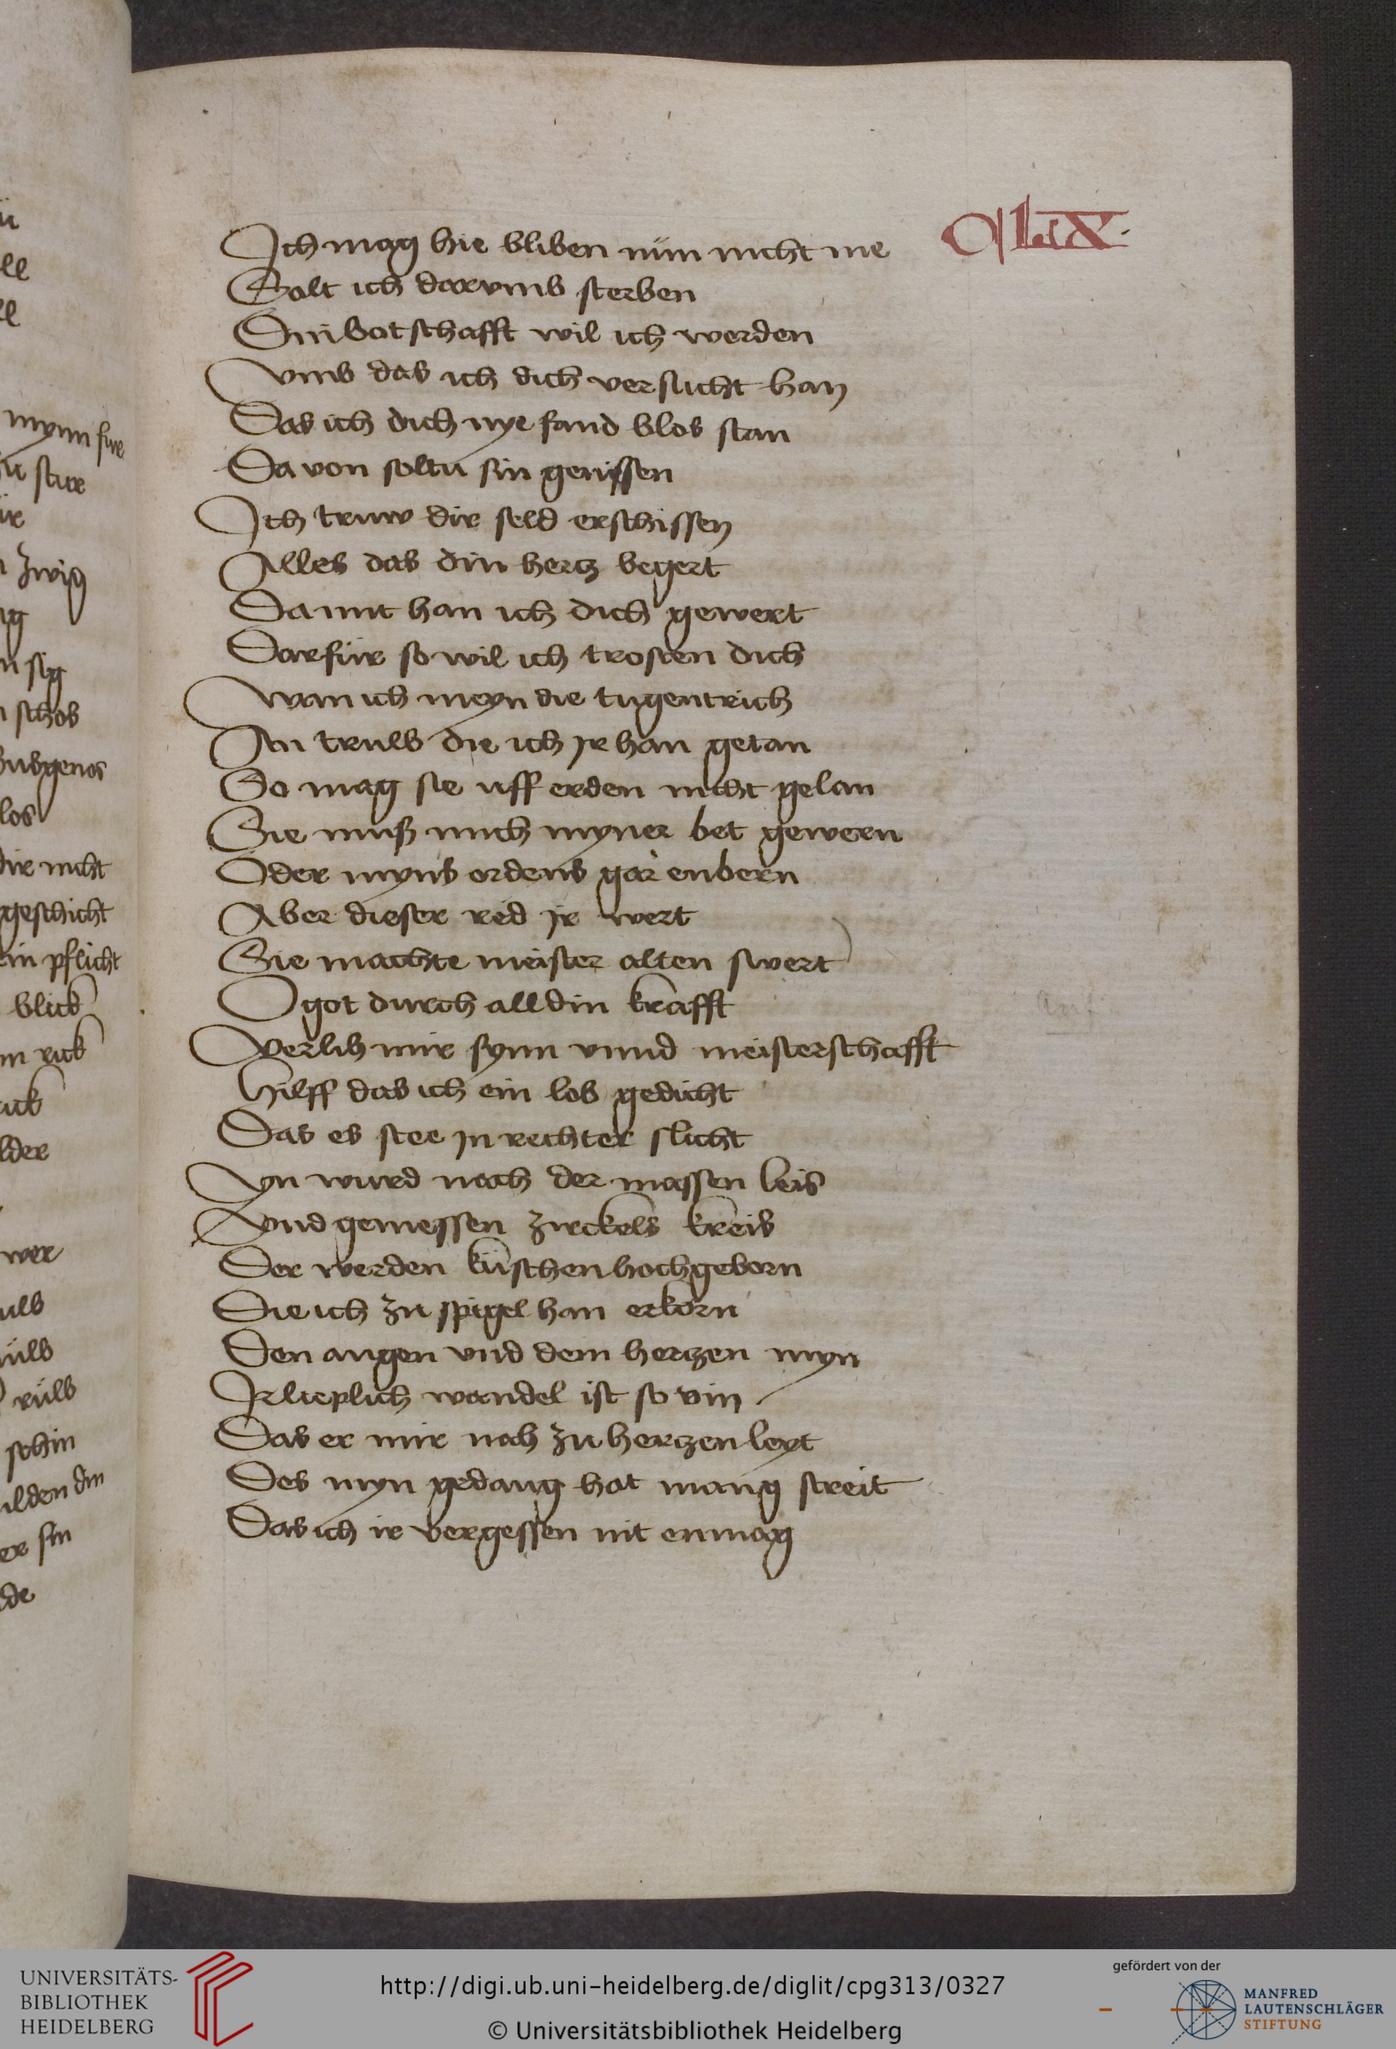 CLIX.
Ich mag hie bliben nün nicht me
Solt ich darvmb sterben
Din botschafft wil ich werden
vmb das ich dich versucht han
Das ich dich nye fand blos stan
Da von soltu sin genissen
Ich truw dir seld erschissen
Alles das din hertz begert
Da mit han ich dich gewert
Darfür so wil ich trosten dich
wan ich meyn die tugentrich
An truwb die ich Ir han getan
So mag sie uff erden nicht gelan
Sie muß mich myner bet gewern
Oder myns ordens gar enbern
Aber dieser red ir wert
Sie machte meister alten swert
O got durch all din krafft
Verlih mir synn vnnd meisterschafft
Hilff das ich ein lob gedicht
Das es stee In rechter slicht
yn wurd nach der massen leis
Vnd gemessen zirckels kreis
Der werden küschen hochgeborn
Die ich zu spigel han erkorn
Den augen vnd dem hertzen myn
Ir lieplich wandel ist so vin
Das er mir nach zu hertzen leyt
Des myn gedang hat mang streit
Das ich ir vergessen nit enmag
mynn fur
zwig
sig
schos
los
dir nicht
geschicht
ein pflicht
blick
rick
wer
schin
ilden din
er sin
UNIVERSITÄTS-
BIBLIOTHEK
HEIDELBERG
http://digi.ub.uni-heidelberg.de/diglit/cpg313/0327
© Universitätsbibliothek Heidelberg
gefördert von der
MANFRED
LAUTENSCHLÄGER
STIFTUNG